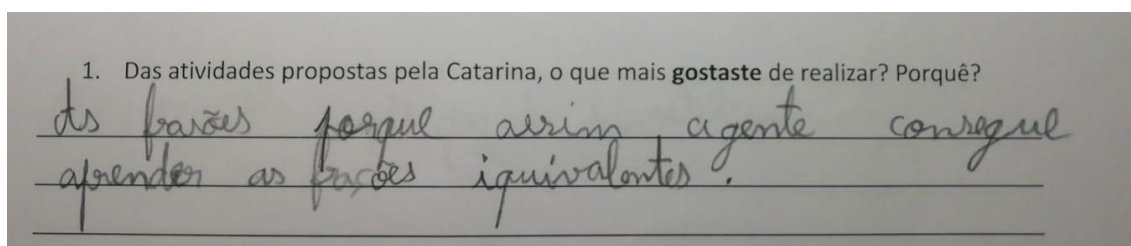 1. Das atividades propostas pela Catarina, o que mais gostaste de realizar? Porquê?
As frações porque assim agente consegue
aprender as frações iquivalentes.